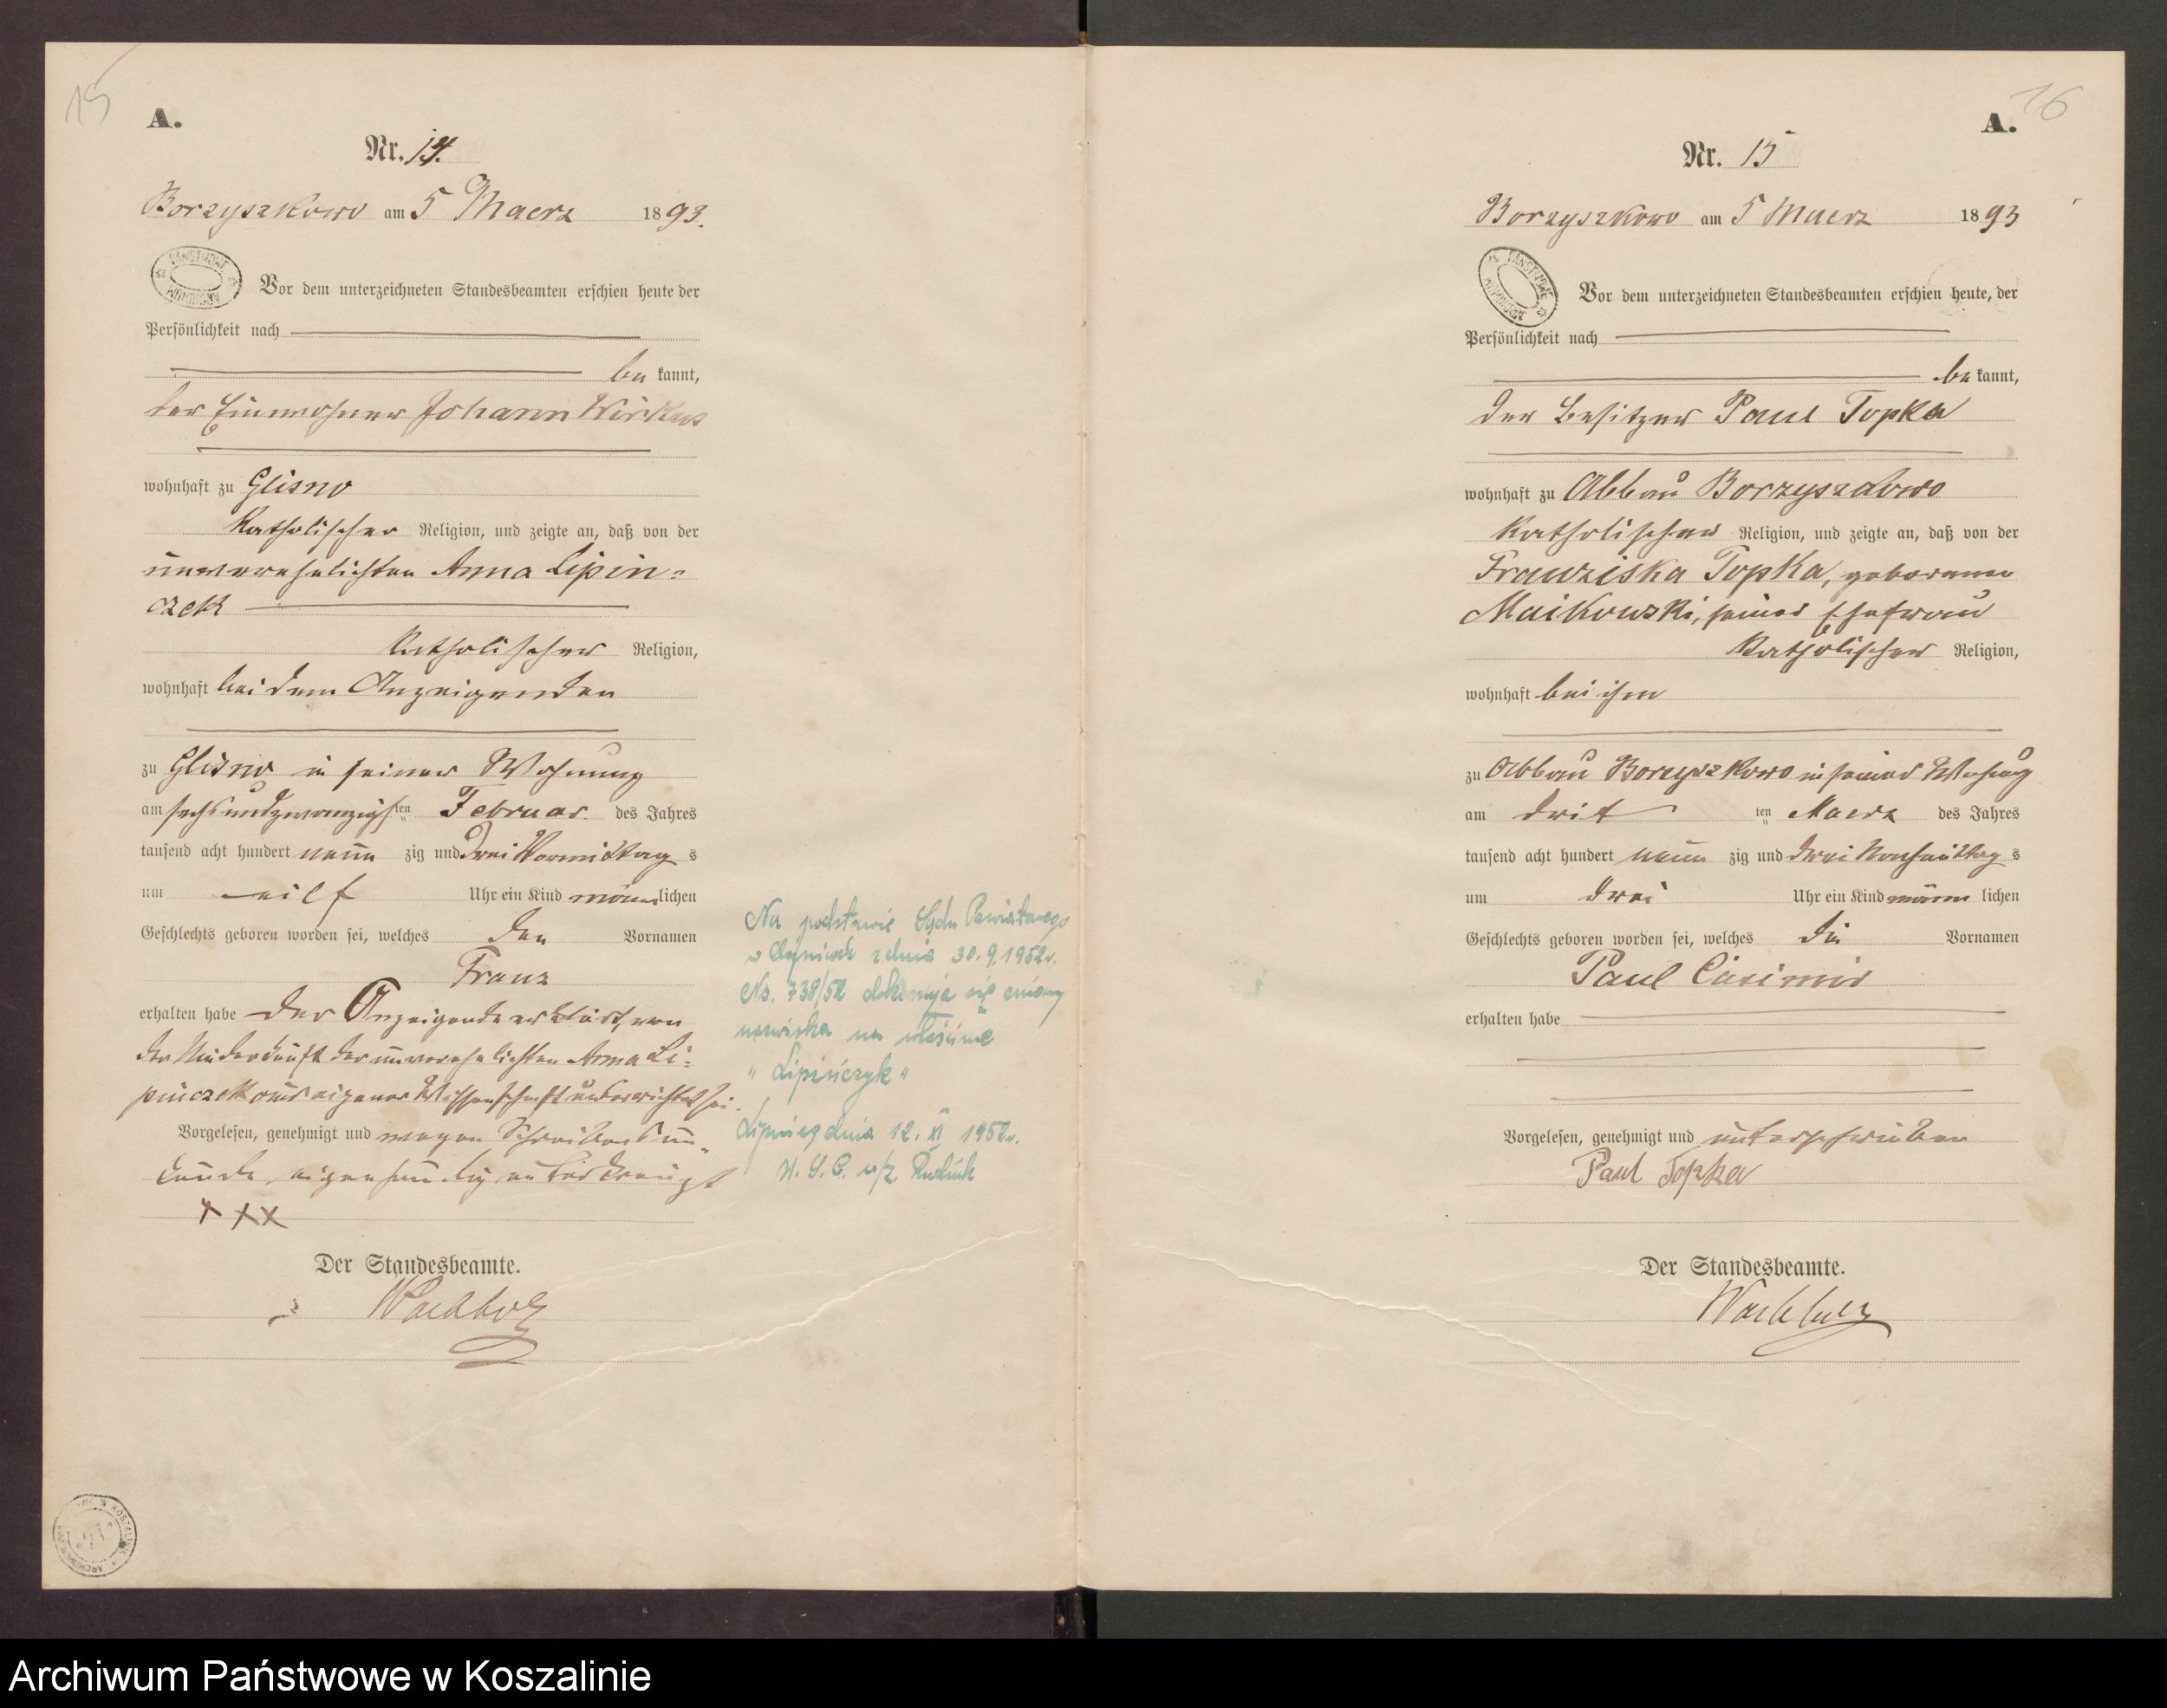 15
A.
Nr. 14.
Borzyszkowo am 5 Maerz 1893.
PAŃSTWOWE ARCHIWUM
Vor dem unterzeichneten Standesbeamten erschien heute der
Persönlichkeit nach
be kannt,
der Einwohner Johann Wirkus
wohnhaft zu Glisno
katholischer Religion, und zeigte an, daß von der
unverehelichten Anna Lipin-
czek
katholischer Religion,
wohnhaft bei dem Anzeigenden
zu Glisno in seiner Wohnung
am sechsundzwanzigsten Februar des Jahres
tausend acht hundert neun zig und drei Vormittag s
um eilf Uhr ein Kind männlichen
Geschlechts geboren worden sei, welches den Vornamen
Franz
erhalten habe Der Anzeigende erklärt, von
der Niederkunft der unverehelichten Anna Li-
pinczek aus eigener Wissenschaft unterrichtet sei.
Vorgelesen, genehmigt und wegen Schreibensun-
kunde eigenhändig unterkreuzt
+ + x
Der Standesbeamte.
Wachholz
Na podstawie Sądu Powiatowego
w z dnia 30.9.1952r.
No. 738/52 dokonuje się zmiany
nazwiska na właściwe
"Lipińczyk"
Lipnica dnia 12. XI 1952r.
U. S. C. w/z
ARCHIWUM PAŃSTWOWE W KOSZALINIE
16
A.
Nr. 15
Borzyszkowo am 5 Maerz 1893
PAŃSTWOWE ARCHIWUM
Vor dem unterzeichneten Standesbeamten erschien heute, der
Persönlichkeit nach
be kannt,
der Besitzer Paul Topka
wohnhaft zu Abbau Borzyszkowo
katholischer Religion, und zeigte an, daß von der
Franziska Topka, geborene
Maikowski, seiner Ehefrau
katholischer Religion,
wohnhaft bei ihm
zu Abbau Borzyszkowo in seiner Wohnung
am drit ten Maerz des Jahres
tausend acht hundert neun zig und drei Nachmittag s
um drei Uhr ein Kind männ lichen
Geschlechts geboren worden sei, welches die Vornamen
Paul Casimir
erhalten habe
Vorgelesen, genehmigt und unterschrieben
Paul Topka
Der Standesbeamte.
Wachholz
Archiwum Państwowe w Koszalinie